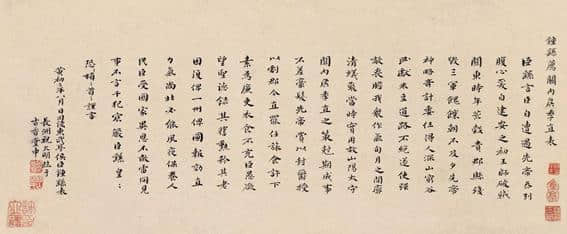 鍾繇薦關內侯季直表
臣繇言臣自遭遇先帝忝列
腹心爰自建安之初王師破賊
關東時年荒穀貴郡縣殘
毀三軍餽饟朝不及夕先帝
神略奇計委任得人深山窮谷
民獻米豆道路不絕遂使強
敵喪膽我眾作氣旬月之間廓
清蟻聚當時實用故山陽太守
關內侯季直之策剋期成事
不差豪髮先帝賞以封爵授
以劇郡今直罷任旅食許下
素為廉吏衣食不充臣愚欲
望聖德錄其舊勳矜其老
困復俾一州俾圖報效直
力氣尚壯必能夙夜保養人
民臣受國家異恩不敢雷同見
事不言干犯宸嚴臣繇皇
恐頓首謹言
黃初二年八月日司徒東武亭侯臣鍾繇表
長洲祝允明臨于
古香堂中